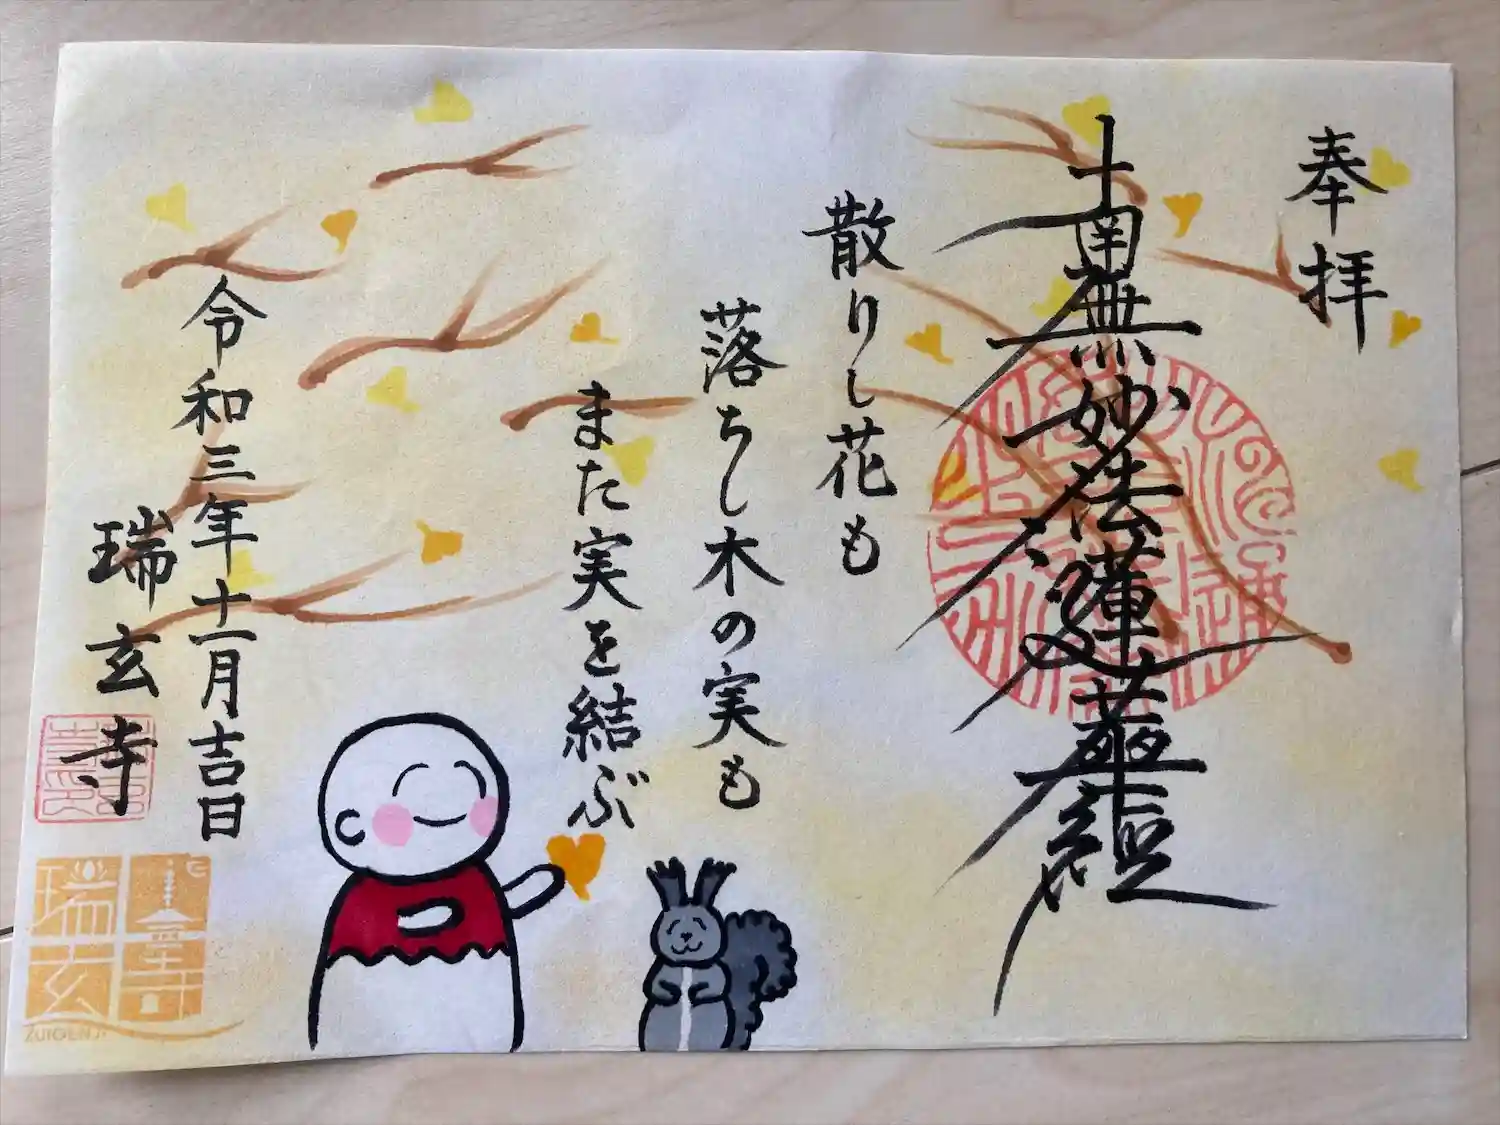 奉拝
南無妙法蓮華経
散りし花も
落ちし木の実も
また実を結ぶ
令和三年十一月吉日
瑞玄寺
瑞玄寺
ZUIGENJI